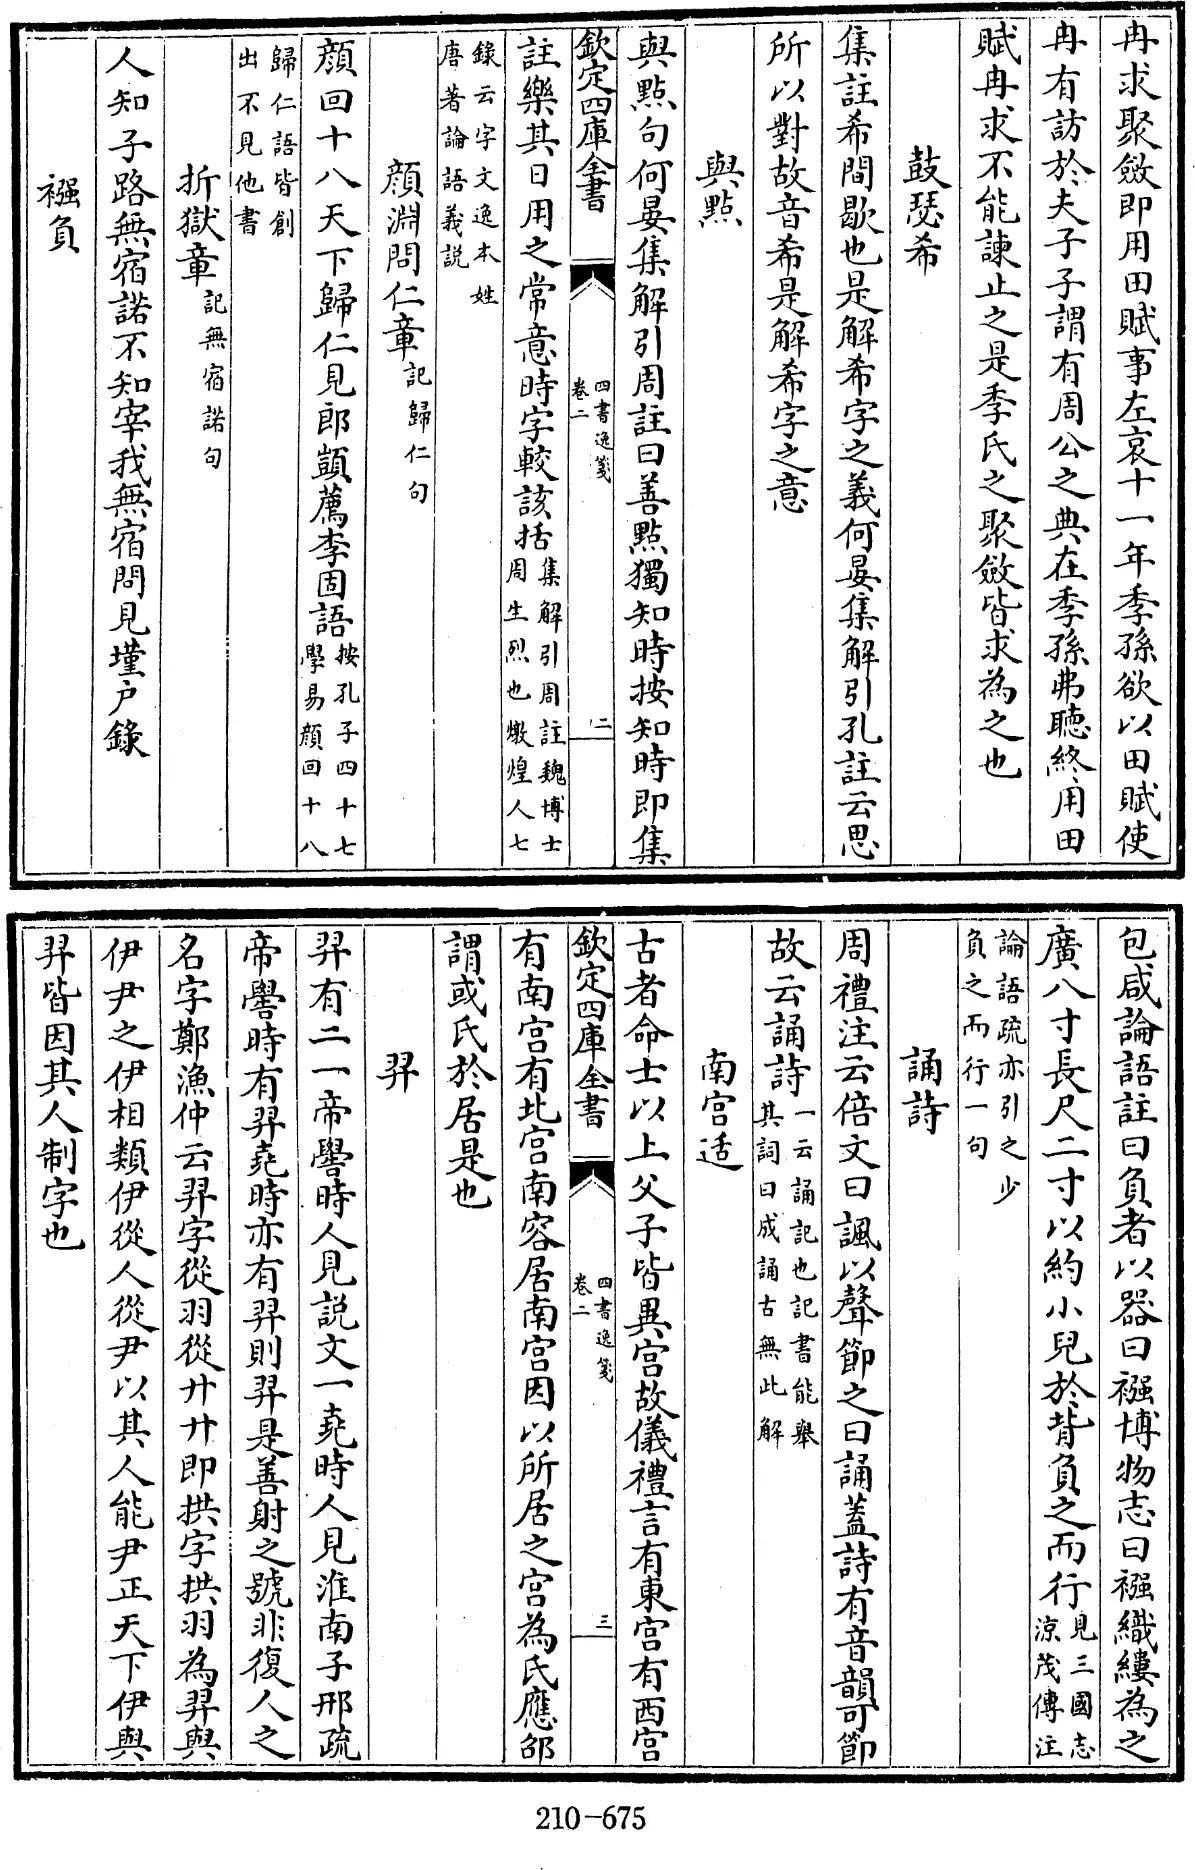 冉求聚斂即用田賦事左哀十一年季孫欲以田賦使
冉有訪於夫子子謂有周公之典在季孫弗聽終用田
賦冉求不能諫止之是季氏之聚斂皆求為之也
鼓瑟希
集註希間歇也是解希字之義何晏集解引孔註云思
所以對故音希是解希字之意
與點
與點句何晏集解引周註曰善點獨知時按知時即集
欽定四庫全書
四書逸箋
卷二
二
註樂其日用之常意時字較該括集解引周註魏博士
周生烈也燉煌人七
錄云字文逸本姓
唐著論語義説
顔淵問仁章記歸仁句
顔回十八天下歸仁見郎顗薦李固語按孔子四十七
學易顔回十八
歸仁語皆創
出不見他書
折獄章記無宿諾句
人知子路無宿諾不知宰我無宿問見墐户錄
襁負
包咸論語註曰負者以器曰襁博物志曰襁織縷為之
廣八寸長尺二寸以約小兒於背負之而行見三國志
涼茂傳注
論語疏亦引之少
負之而行一句
誦詩
周禮注云倍文曰諷以聲節之曰誦蓋詩有音韻可節
故云誦詩一云誦記也記書能舉
其詞曰成誦古無此解
南宫适
古者命士以上父子皆異宫故儀禮言有東宫有西宫
欽定四庫全書
四書逸箋
卷二
三
有南宫有北宫南容居南宫因以所居之宫為氏應邵
謂或氏於居是也
羿
羿有二一帝嚳時人見説文一堯時人見淮南子邢疏
帝嚳時有羿堯時亦有羿則羿是善射之號非復人之
名字鄭漁仲云羿字從羽從廾廾即拱字拱羽為羿與
伊尹之伊相類伊從人從尹以其人能尹正天下伊與
羿皆因其人制字也
210-675